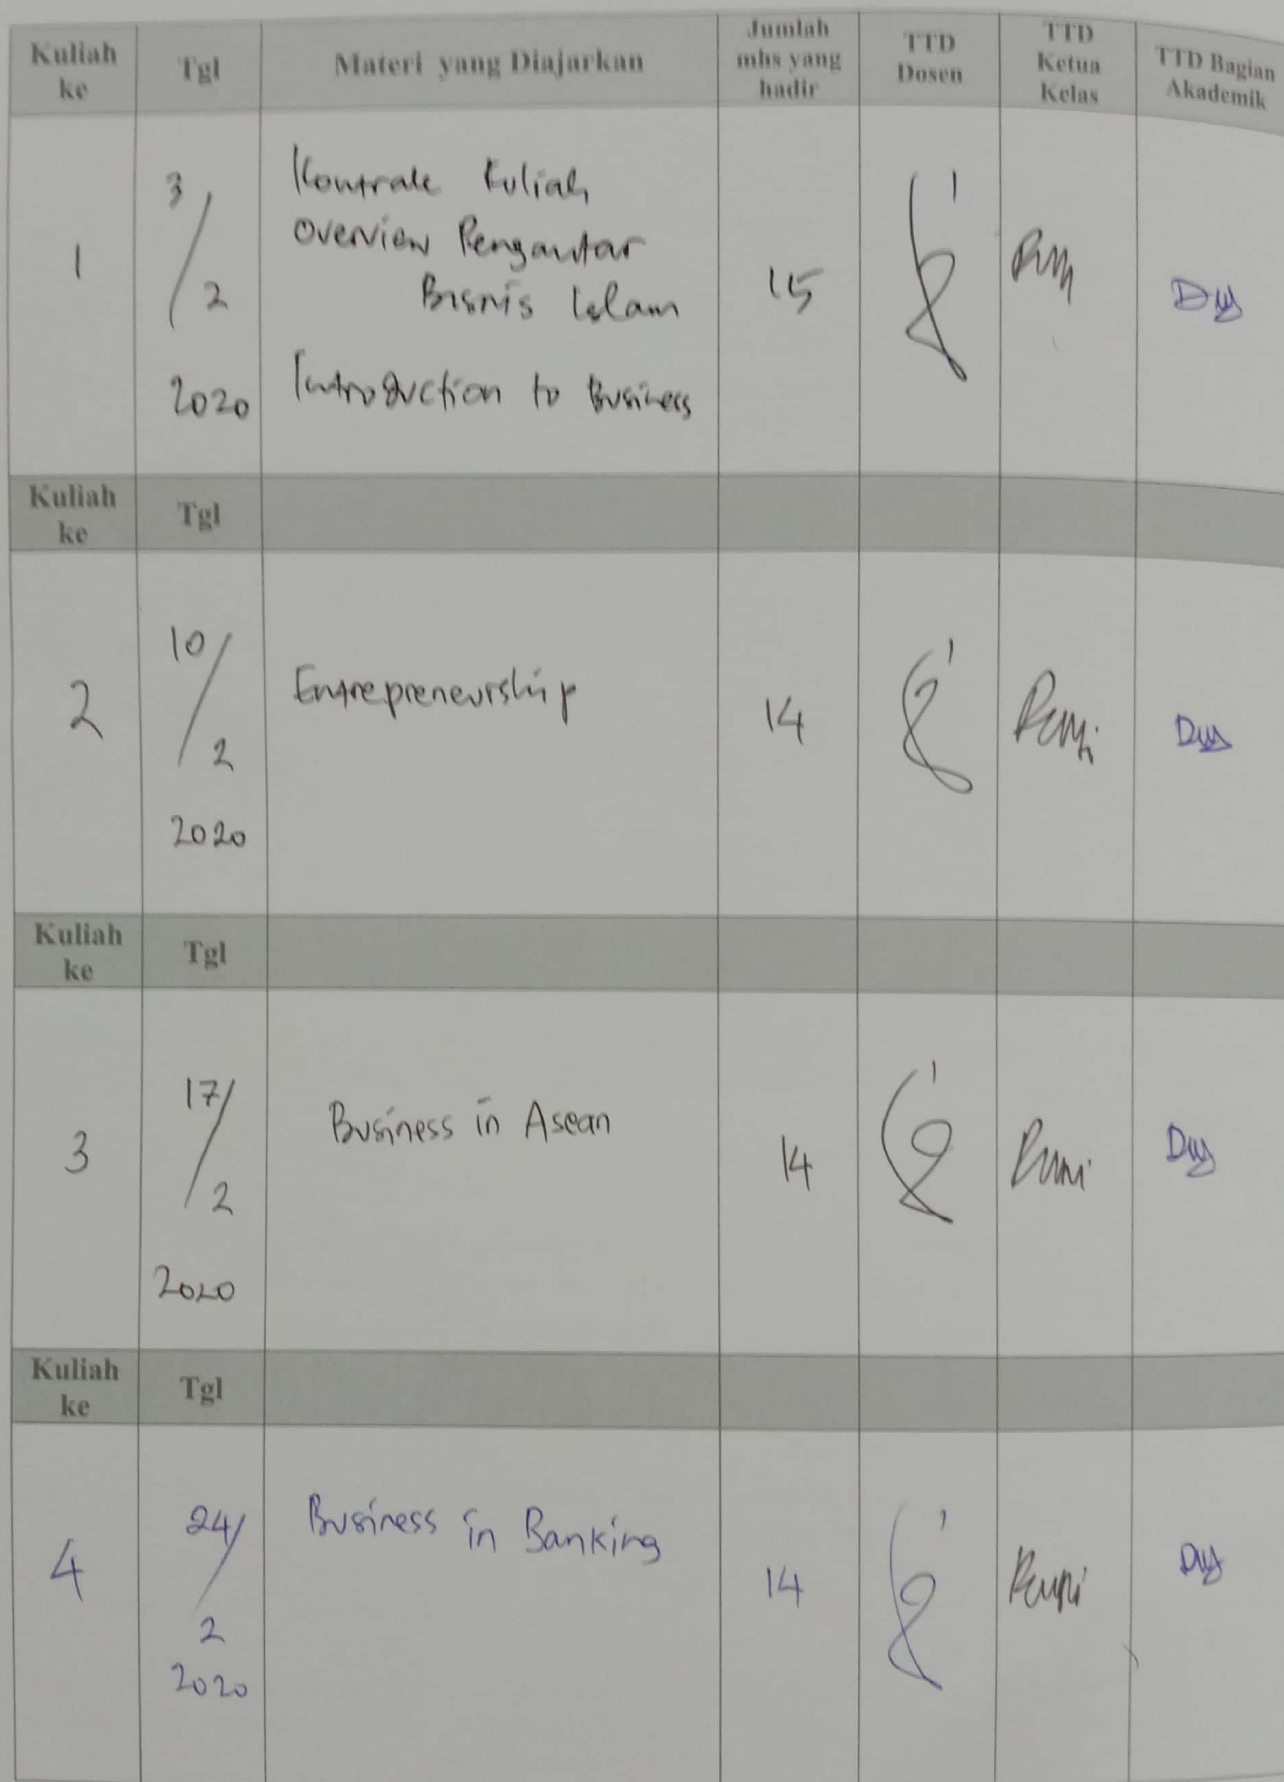 Kuliah ke Tgl Materi yang Diajarkan Jumlah mhs yang hadir TTD Dosen TTD Ketua Kelas TTD Bagian Akademik
1 3/2 2020 Kontrak Kuliah
Overview Pengantar
Bisnis Islam
Introduction to Business
15
Kuliah ke Tgl
2 10/2 2020 Entrepreneurship 14
Kuliah ke Tgl
3 17/2 2020 Business in Asean 14
Kuliah ke Tgl
4 24/2 2020 Business in Banking 14